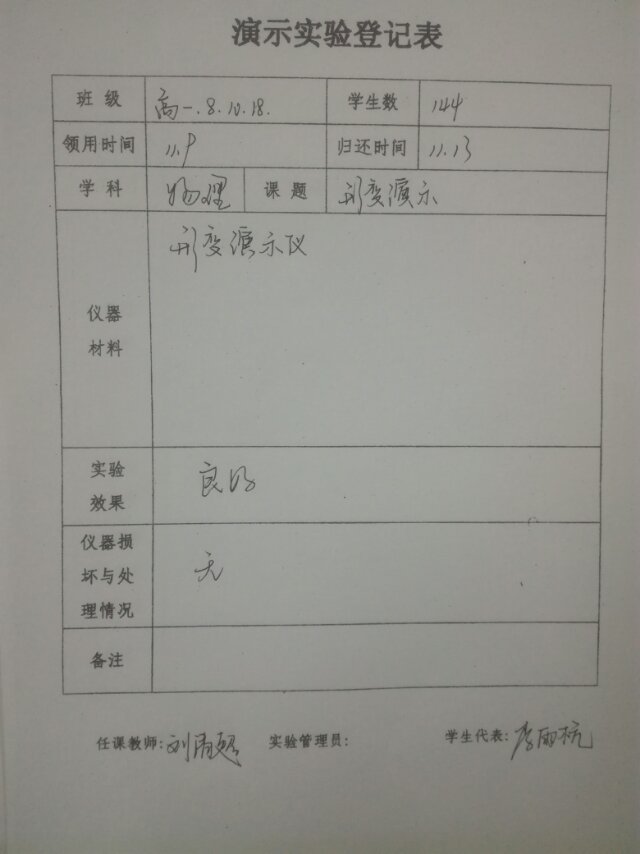 演示实验登记表
班级 高一.8.10.18. 学生数 144
领用时间 11.9 归还时间 11.13
学科 物理 课题 形变演示
仪器
材料
形变演示仪
实验
效果
良好
仪器损
坏与处
理情况
无
备注
任课教师:刘 实验管理员: 学生代表:李雨杭